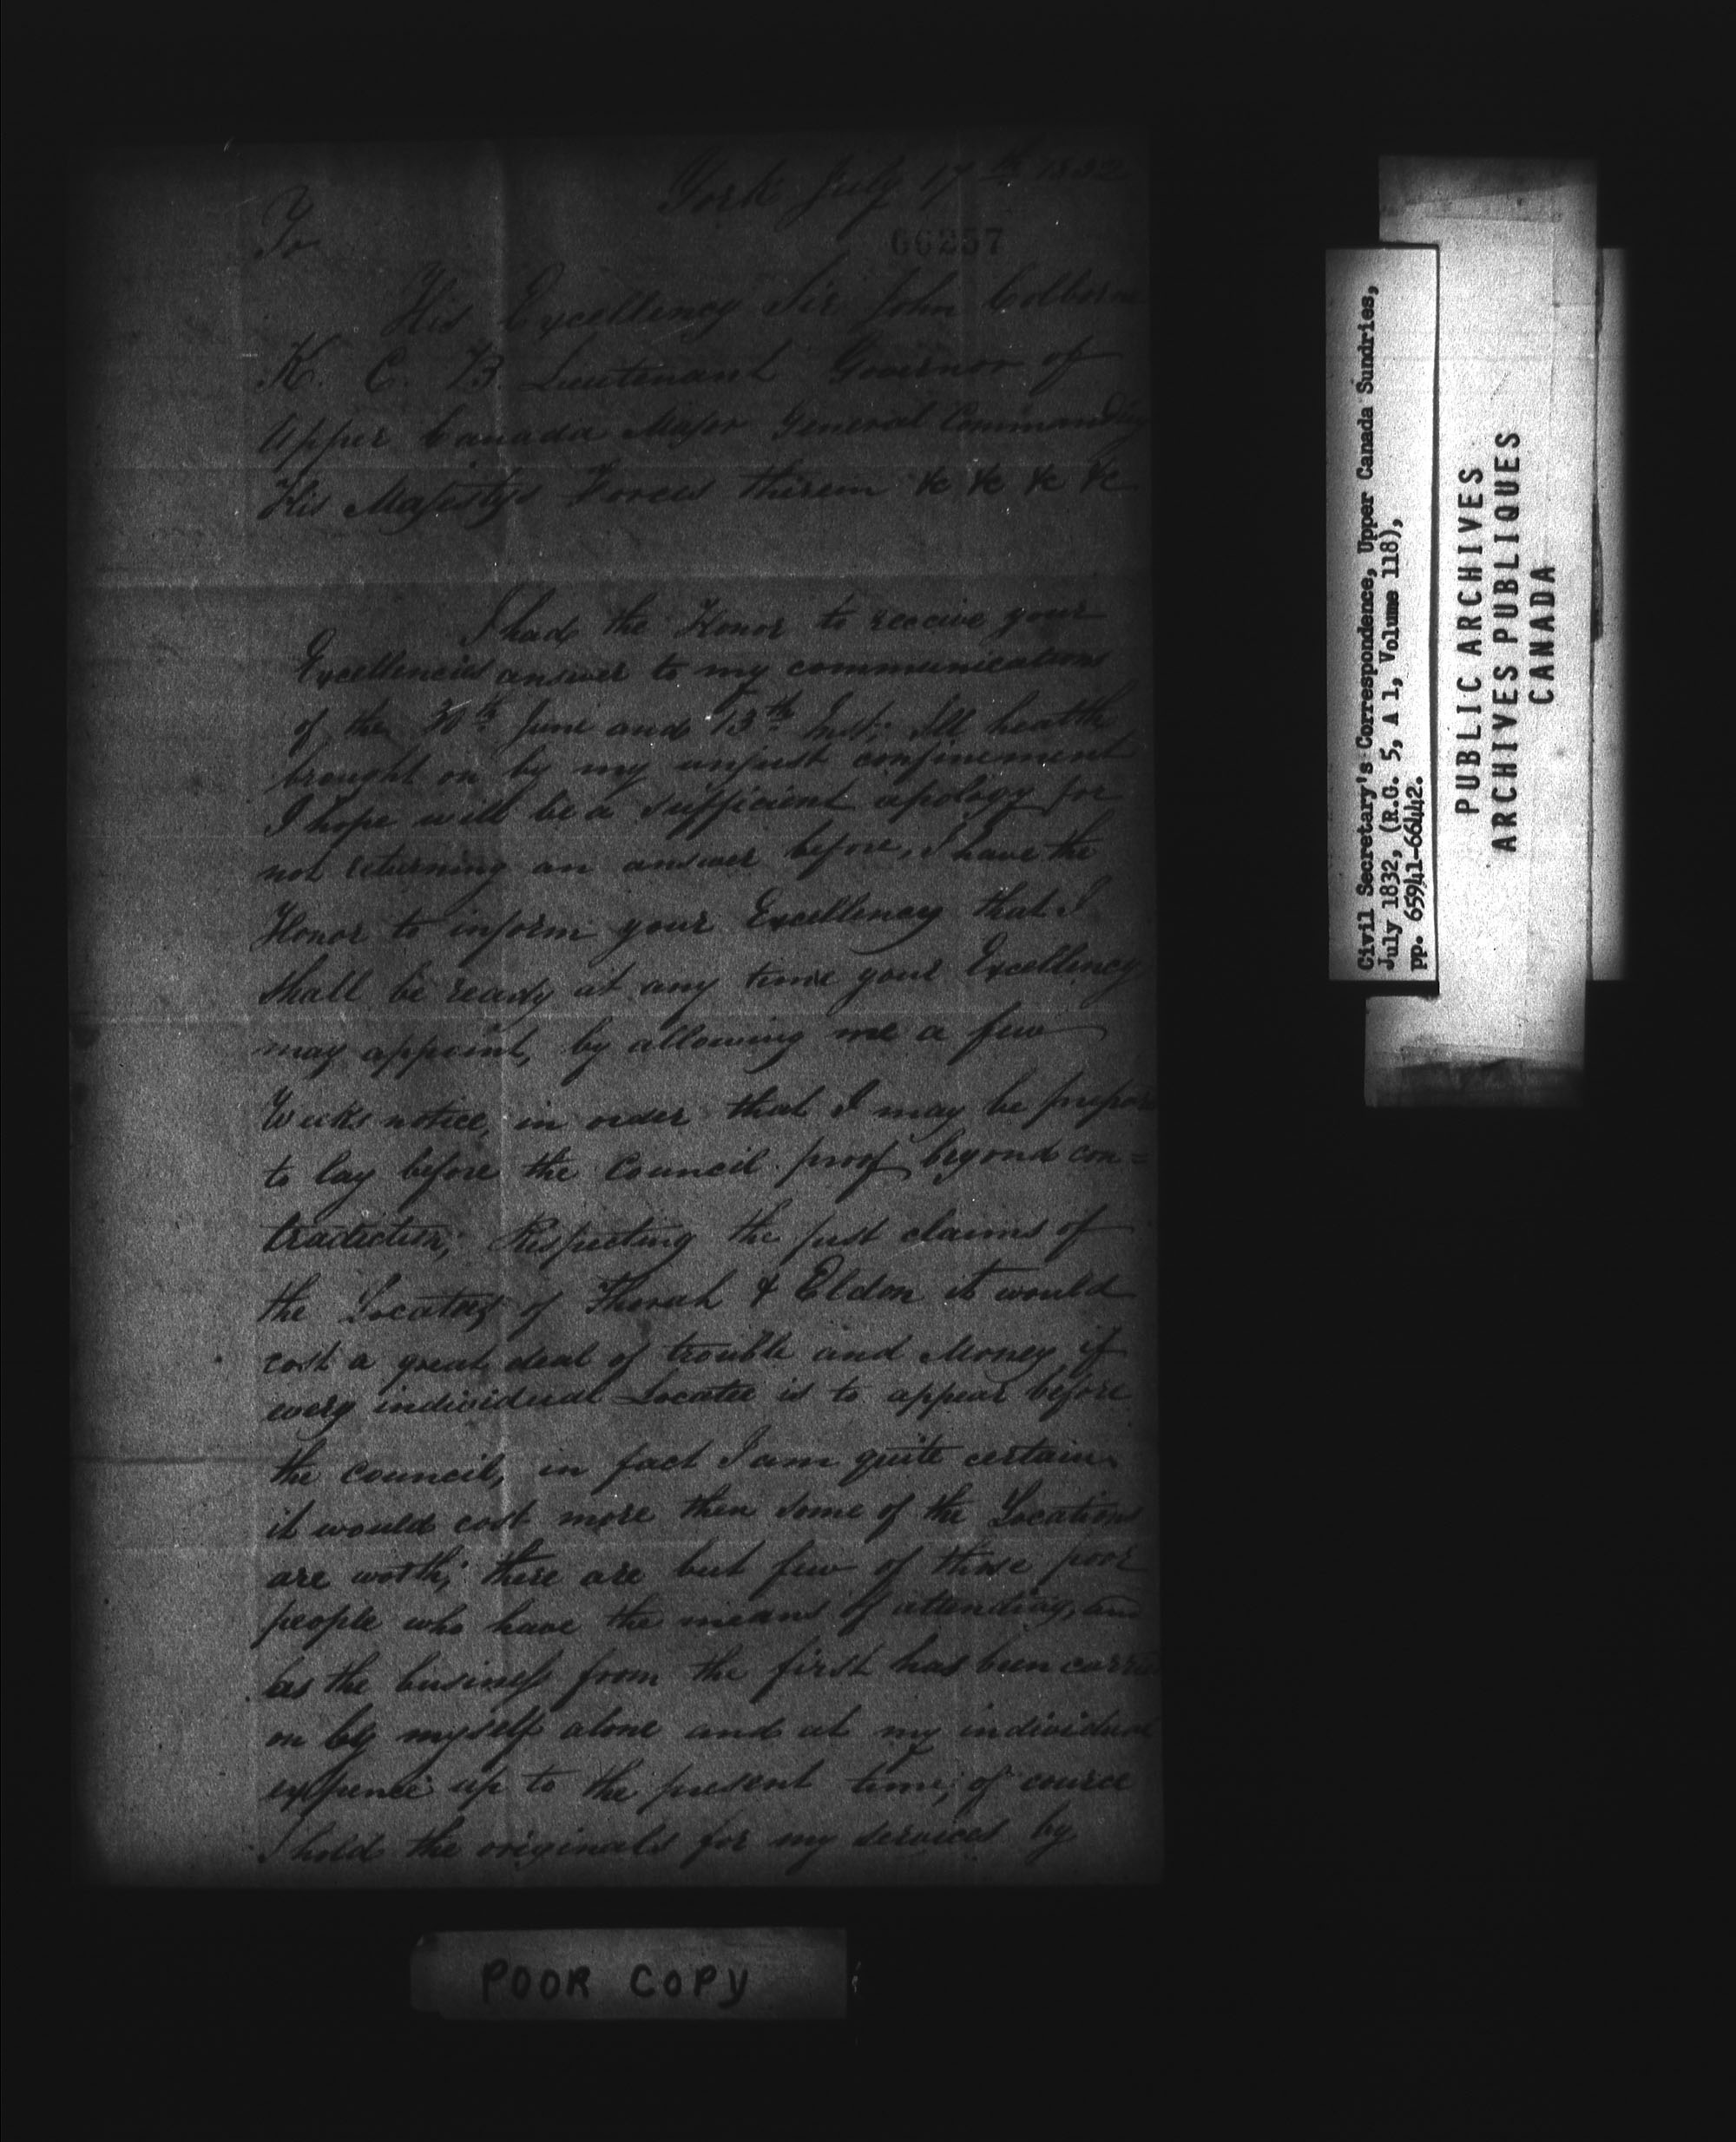 York July 17th 1832
66257
To
His Excellency Sir John Colborne
K. C. B. Lieutenant Governor of
Upper Canada Major General Commanding
His Majestys Forces therein &c &c &c &c
I had the Honor to receive your
Excellencies answer to my communications
of the 30th June and 13th Inst. Ill health
brought on by my unjust confinement
I hope will be a sifficient apology for
not returning an answer before, I have the
Honor to inform your Excellency that I
shall be ready at any time your Excellency
may appoint, by allowing me a few
Weeks notice, in order that I may be prepar
to lay before the Council proof beyond con=
tradiction; Respecting the just claims of
the Locatees of Thorah & Eldon it would
cost a great deal of trouble and Money if
every individual Locatee is to appear before
the council, in fact I am quite certain
it would cost more then some of the Locations
are worth; there are but few of those poor
people who have the means of attending, and
as the business from the first has been carrie
on by myself alone and at my individual
expence up to the present time; of cource
I hold the originals for my services by
POOR COPY
Civil Secretary's Correspondence, Upper Canada Sundries,
July 1832, (R.G. 5, A 1, Volume 118),
pp. 65941-66442.
PUBLIC ARCHIVES
ARCHIVES PUBLIQUES
CANADA